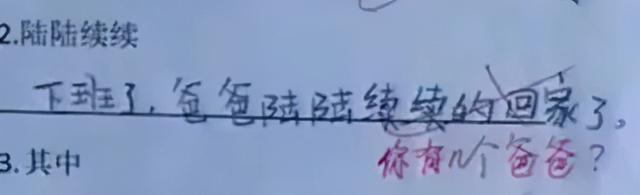 2.陆陆续续
下班了，爸爸陆陆续续的回家了。
你有几个爸爸？
3.其中